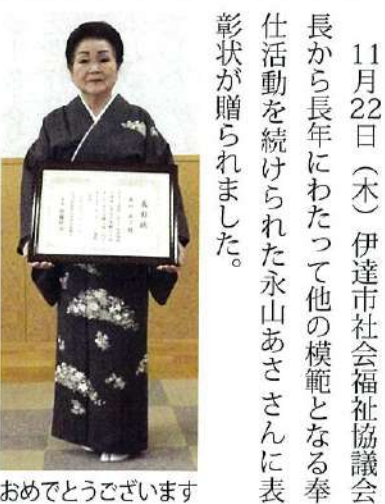 11月22日（木）伊達市社会福祉協議会
長から長年にわたって他の模範となる奉
仕活動を続けられた永山あささんに表
彰状が贈られました。
表彰状
おめでとうございます